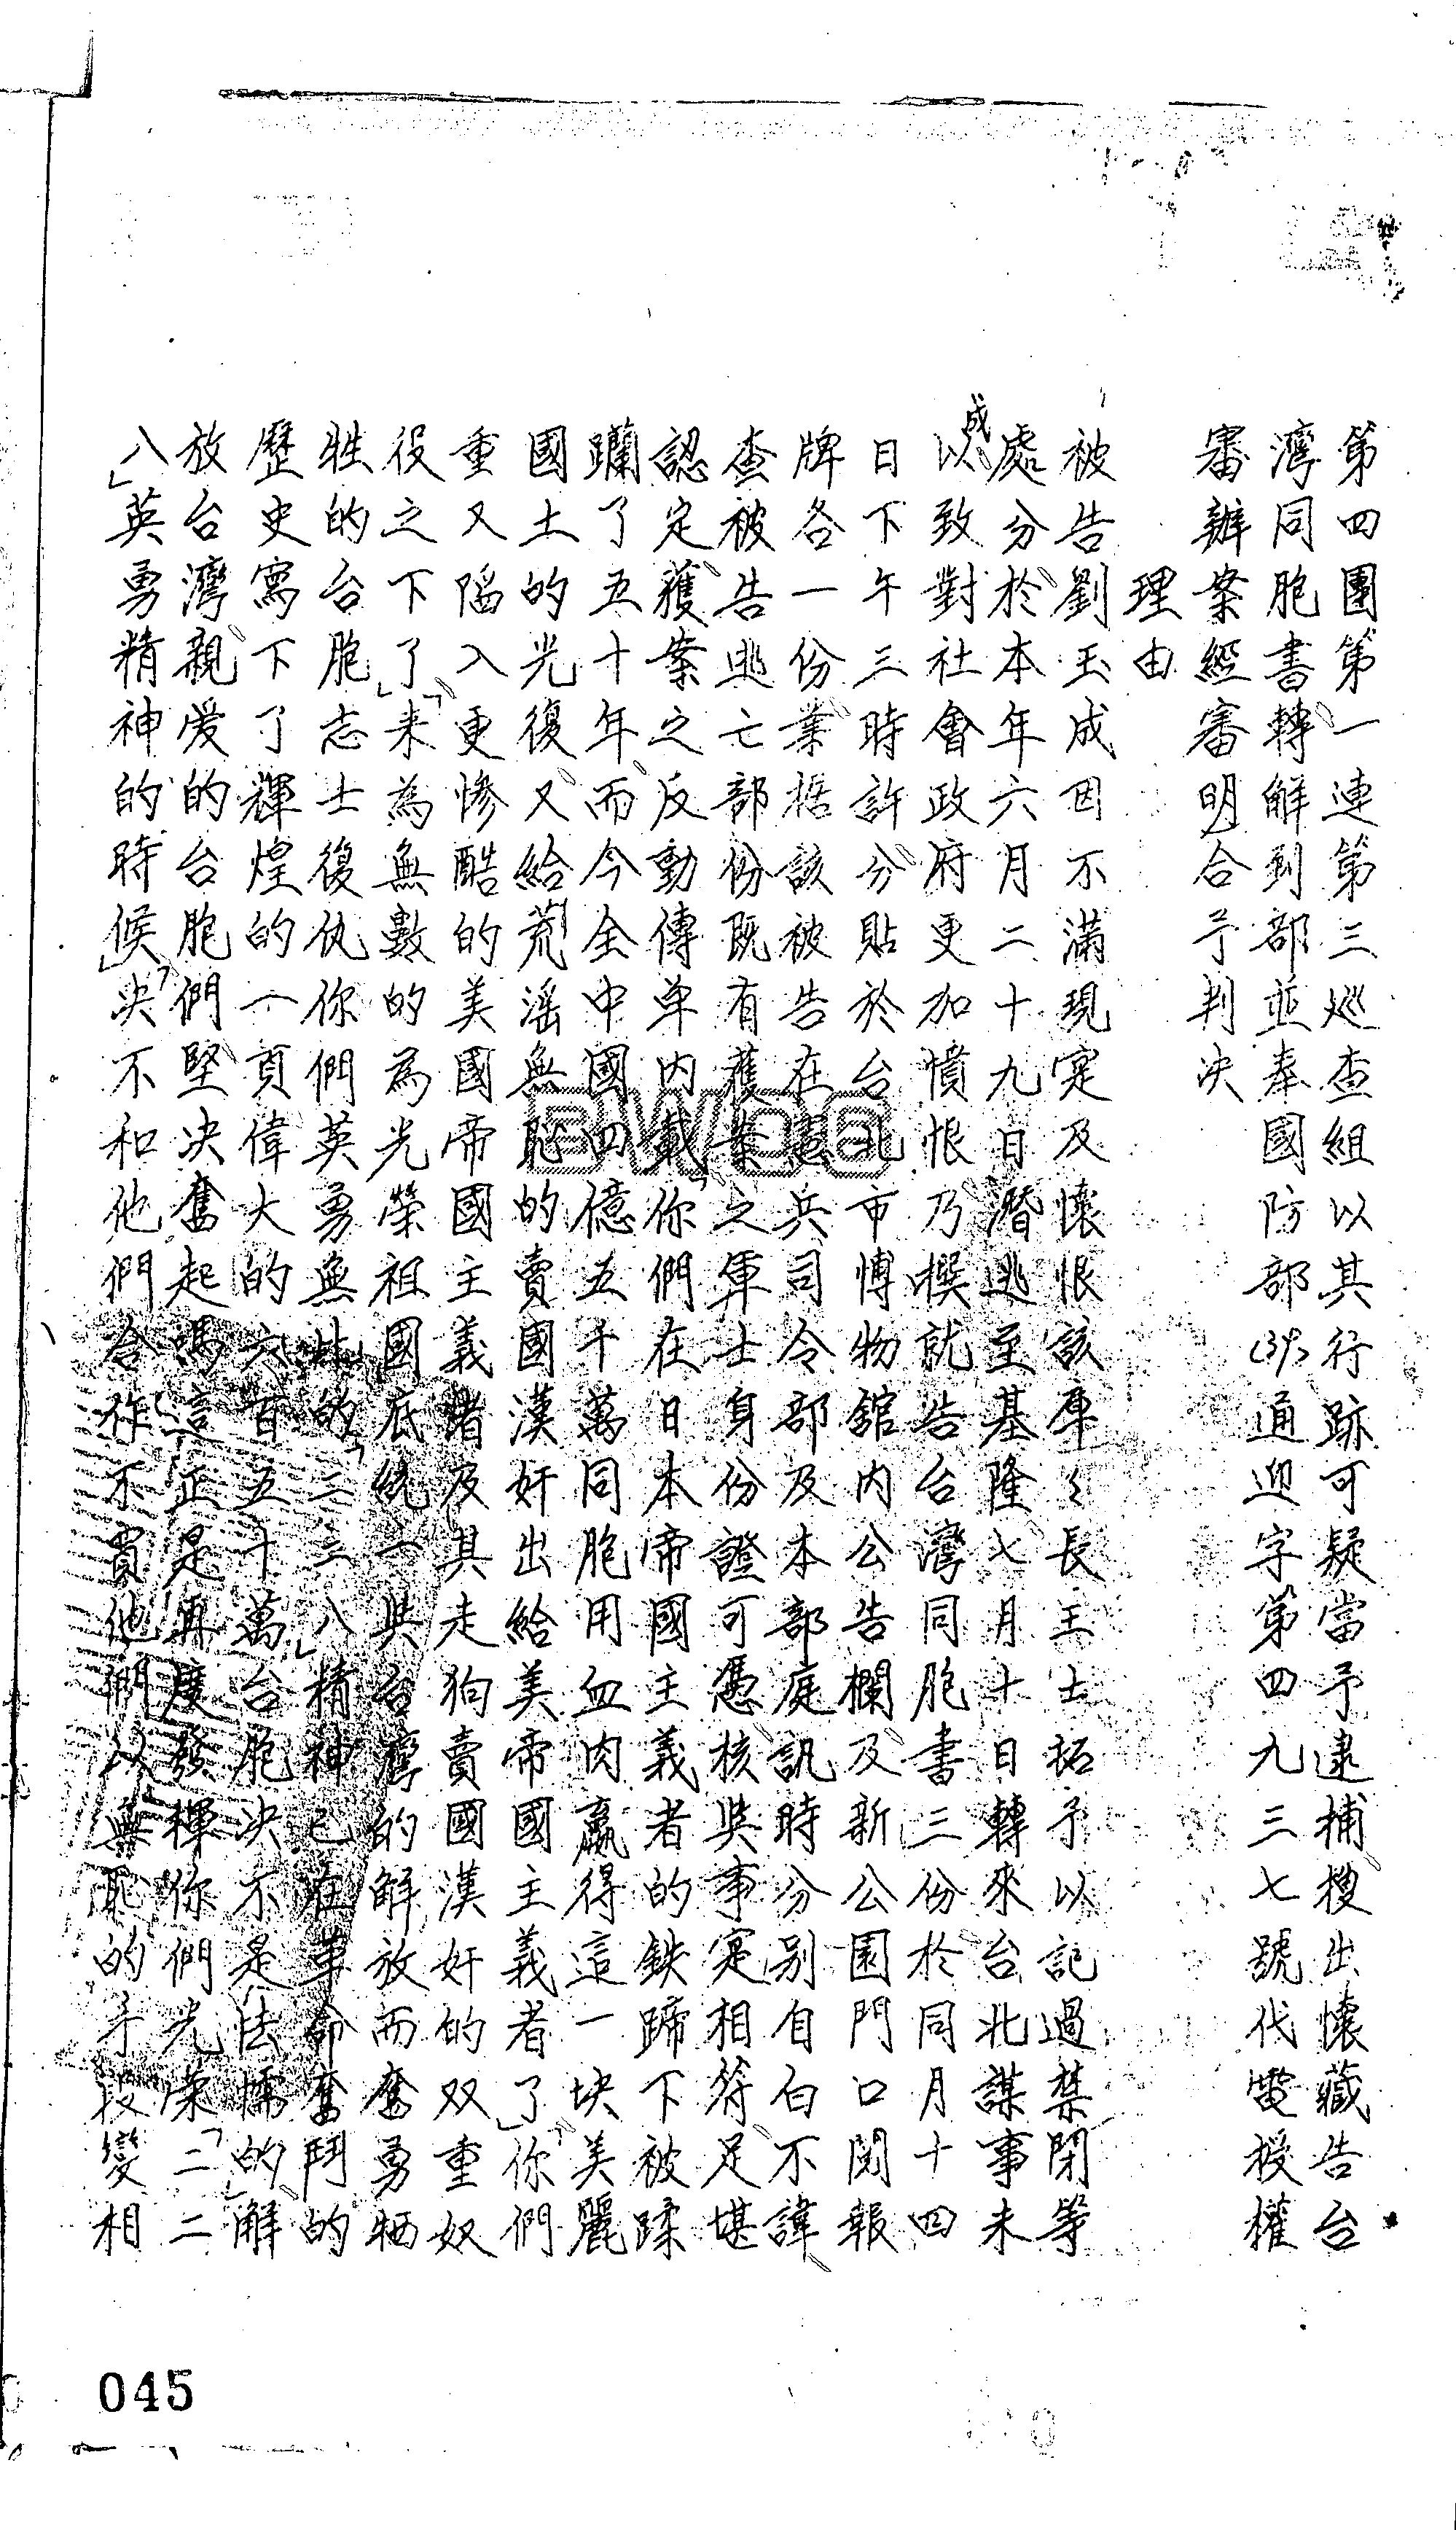 第四團第一連第三巡查組以其行跡可疑當予逮捕搜出懷藏告台
灣同胞書轉解到部並奉國防部(39)通迎字第四九三七號代電授權
審辦案經審明合予判決
理由
被告劉玉成因不滿現寔及懷恨該庫々長王士拓予以記過禁閉等
處分於本年六月二十九日潛逃至基隆七月十日轉來台北謀事未
成
以致對社會政府更加憤恨乃撰就告台灣同胞書三份於同月十四
日下午三時許分貼於台北市博物舘内公告欄及新公園門口閱報
牌各一份業据該被告在憲兵司令部及本部庭訊時分别自白不諱
查被告逃亡部份既有獲案之軍士身份證可憑核與事寔相符足堪
認定獲案之反動傳单内載你們在日本帝國主義者的鉄蹄下被蹂
躪了五十年而今全中國四億五千萬同胞用血肉贏得這一块美麗
國土的光復又給荒滛無恥的賣國漢奸出給美帝國主義者了」你們
重又陷入更惨酷的美國帝國主義諸及其走狗賣國漢奸的双重奴
役之下了」「来為無數的為光榮祖國底統一與台灣的解放而奮勇牺
牲的台胞志士復仇你們英勇無比的「二二八」精神已在革命奮鬥的
歷史寫下了輝煌的一頁偉大的六百五十萬台胞決不是怯懦的」「解
放台灣親爱的台胞們堅決奮起嗎這正是再度發揮你們光荣「二二
八」英勇精神的時候」「决不和他們合作不買他們以無恥的手段變相
045
BWCB